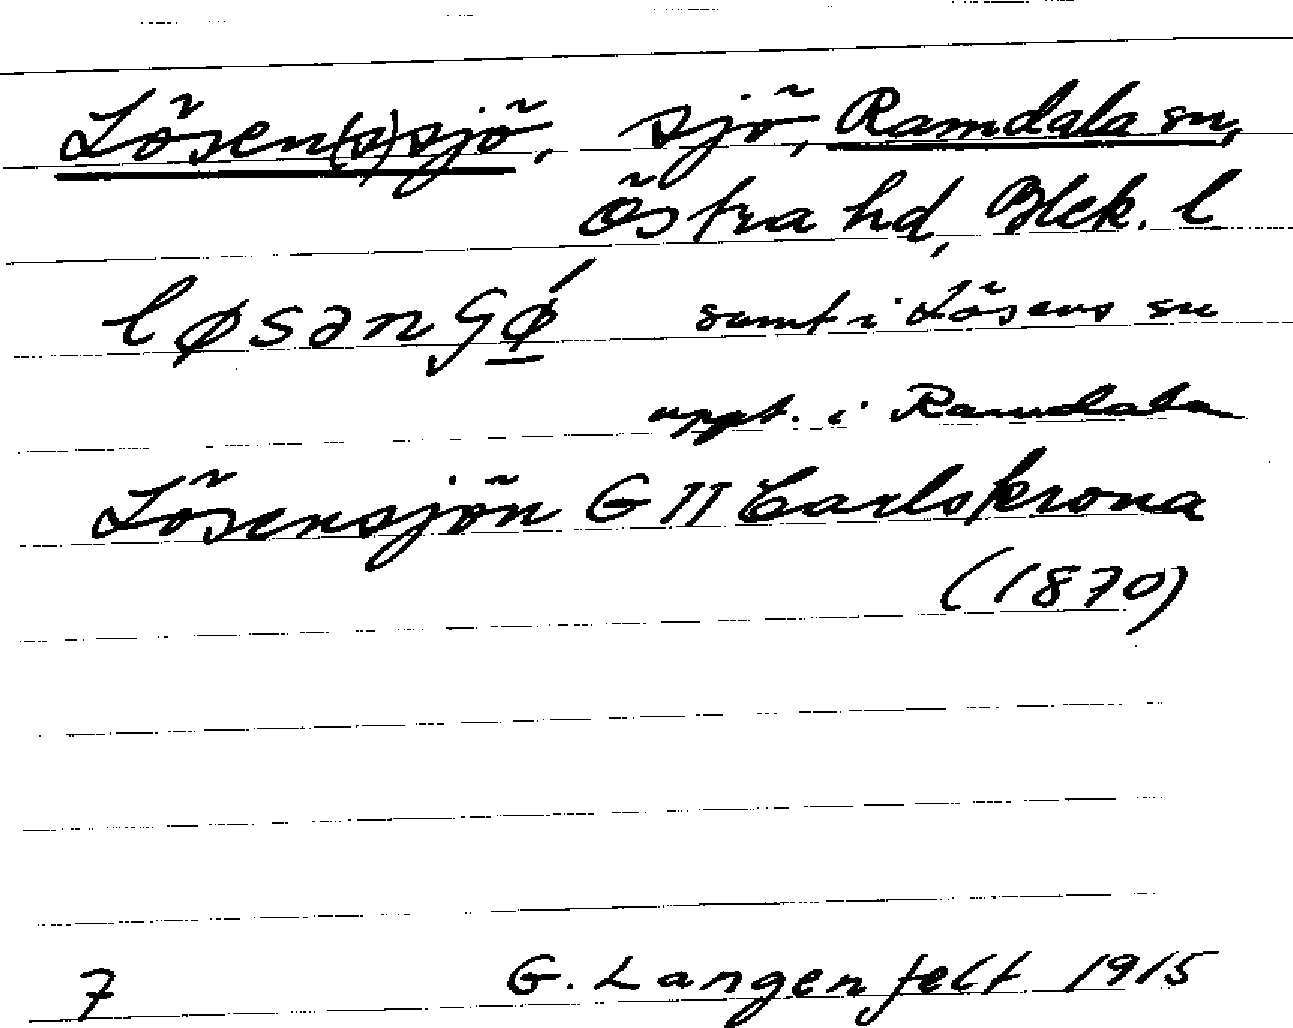 Lösen(s)sjö, sjö, Ramdala sn,
Östra hd, Blek. l
løsəngǿ samt i Lösens sn
uppt. i Ramdala
Lösensjön G II Carlskrona
(1870)
7 G. Langenfelt 1915